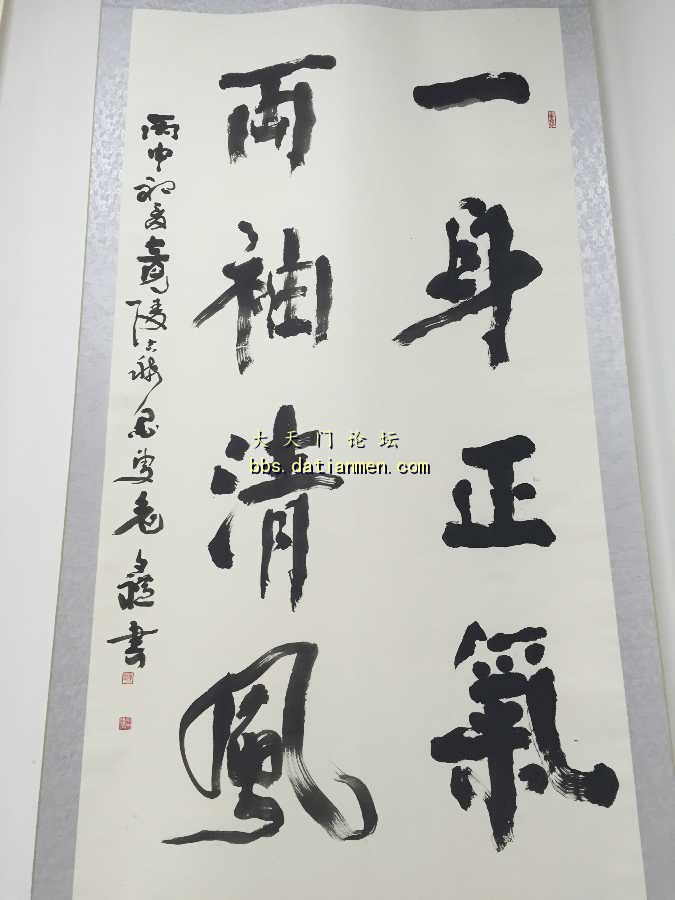 一身正氣
兩袖清風
丙申初夏竟陵
書
大天门论坛
bbs.datianmen.com